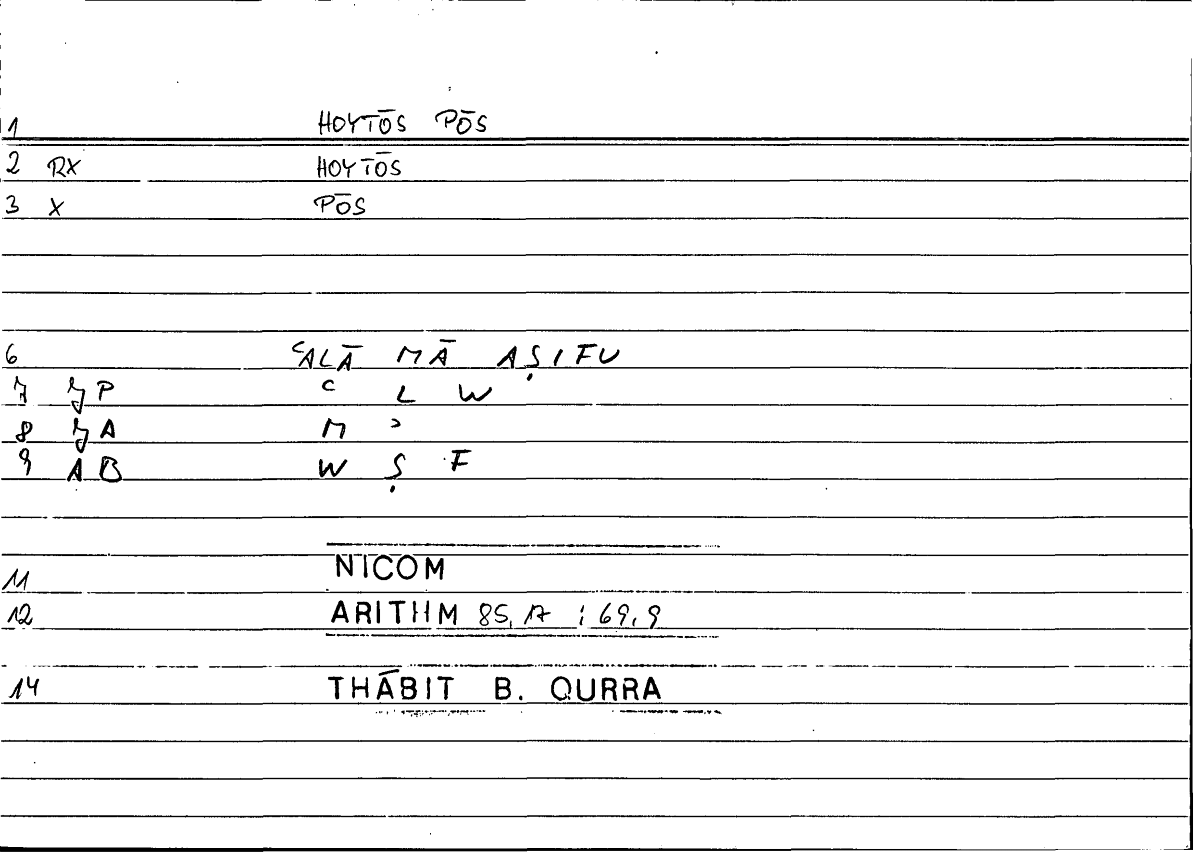 1 HOYTŌS PŌS
2 RX HOYTŌS
3 X PŌS
6 ʿALĀ MĀ AṢIFU
7 ʿ L W
8 M ʾ
9 AB W Ṣ F
11 NICOM
12 ARITHM 85,17 ; 69,9
14 THĀBIT B. QURRA